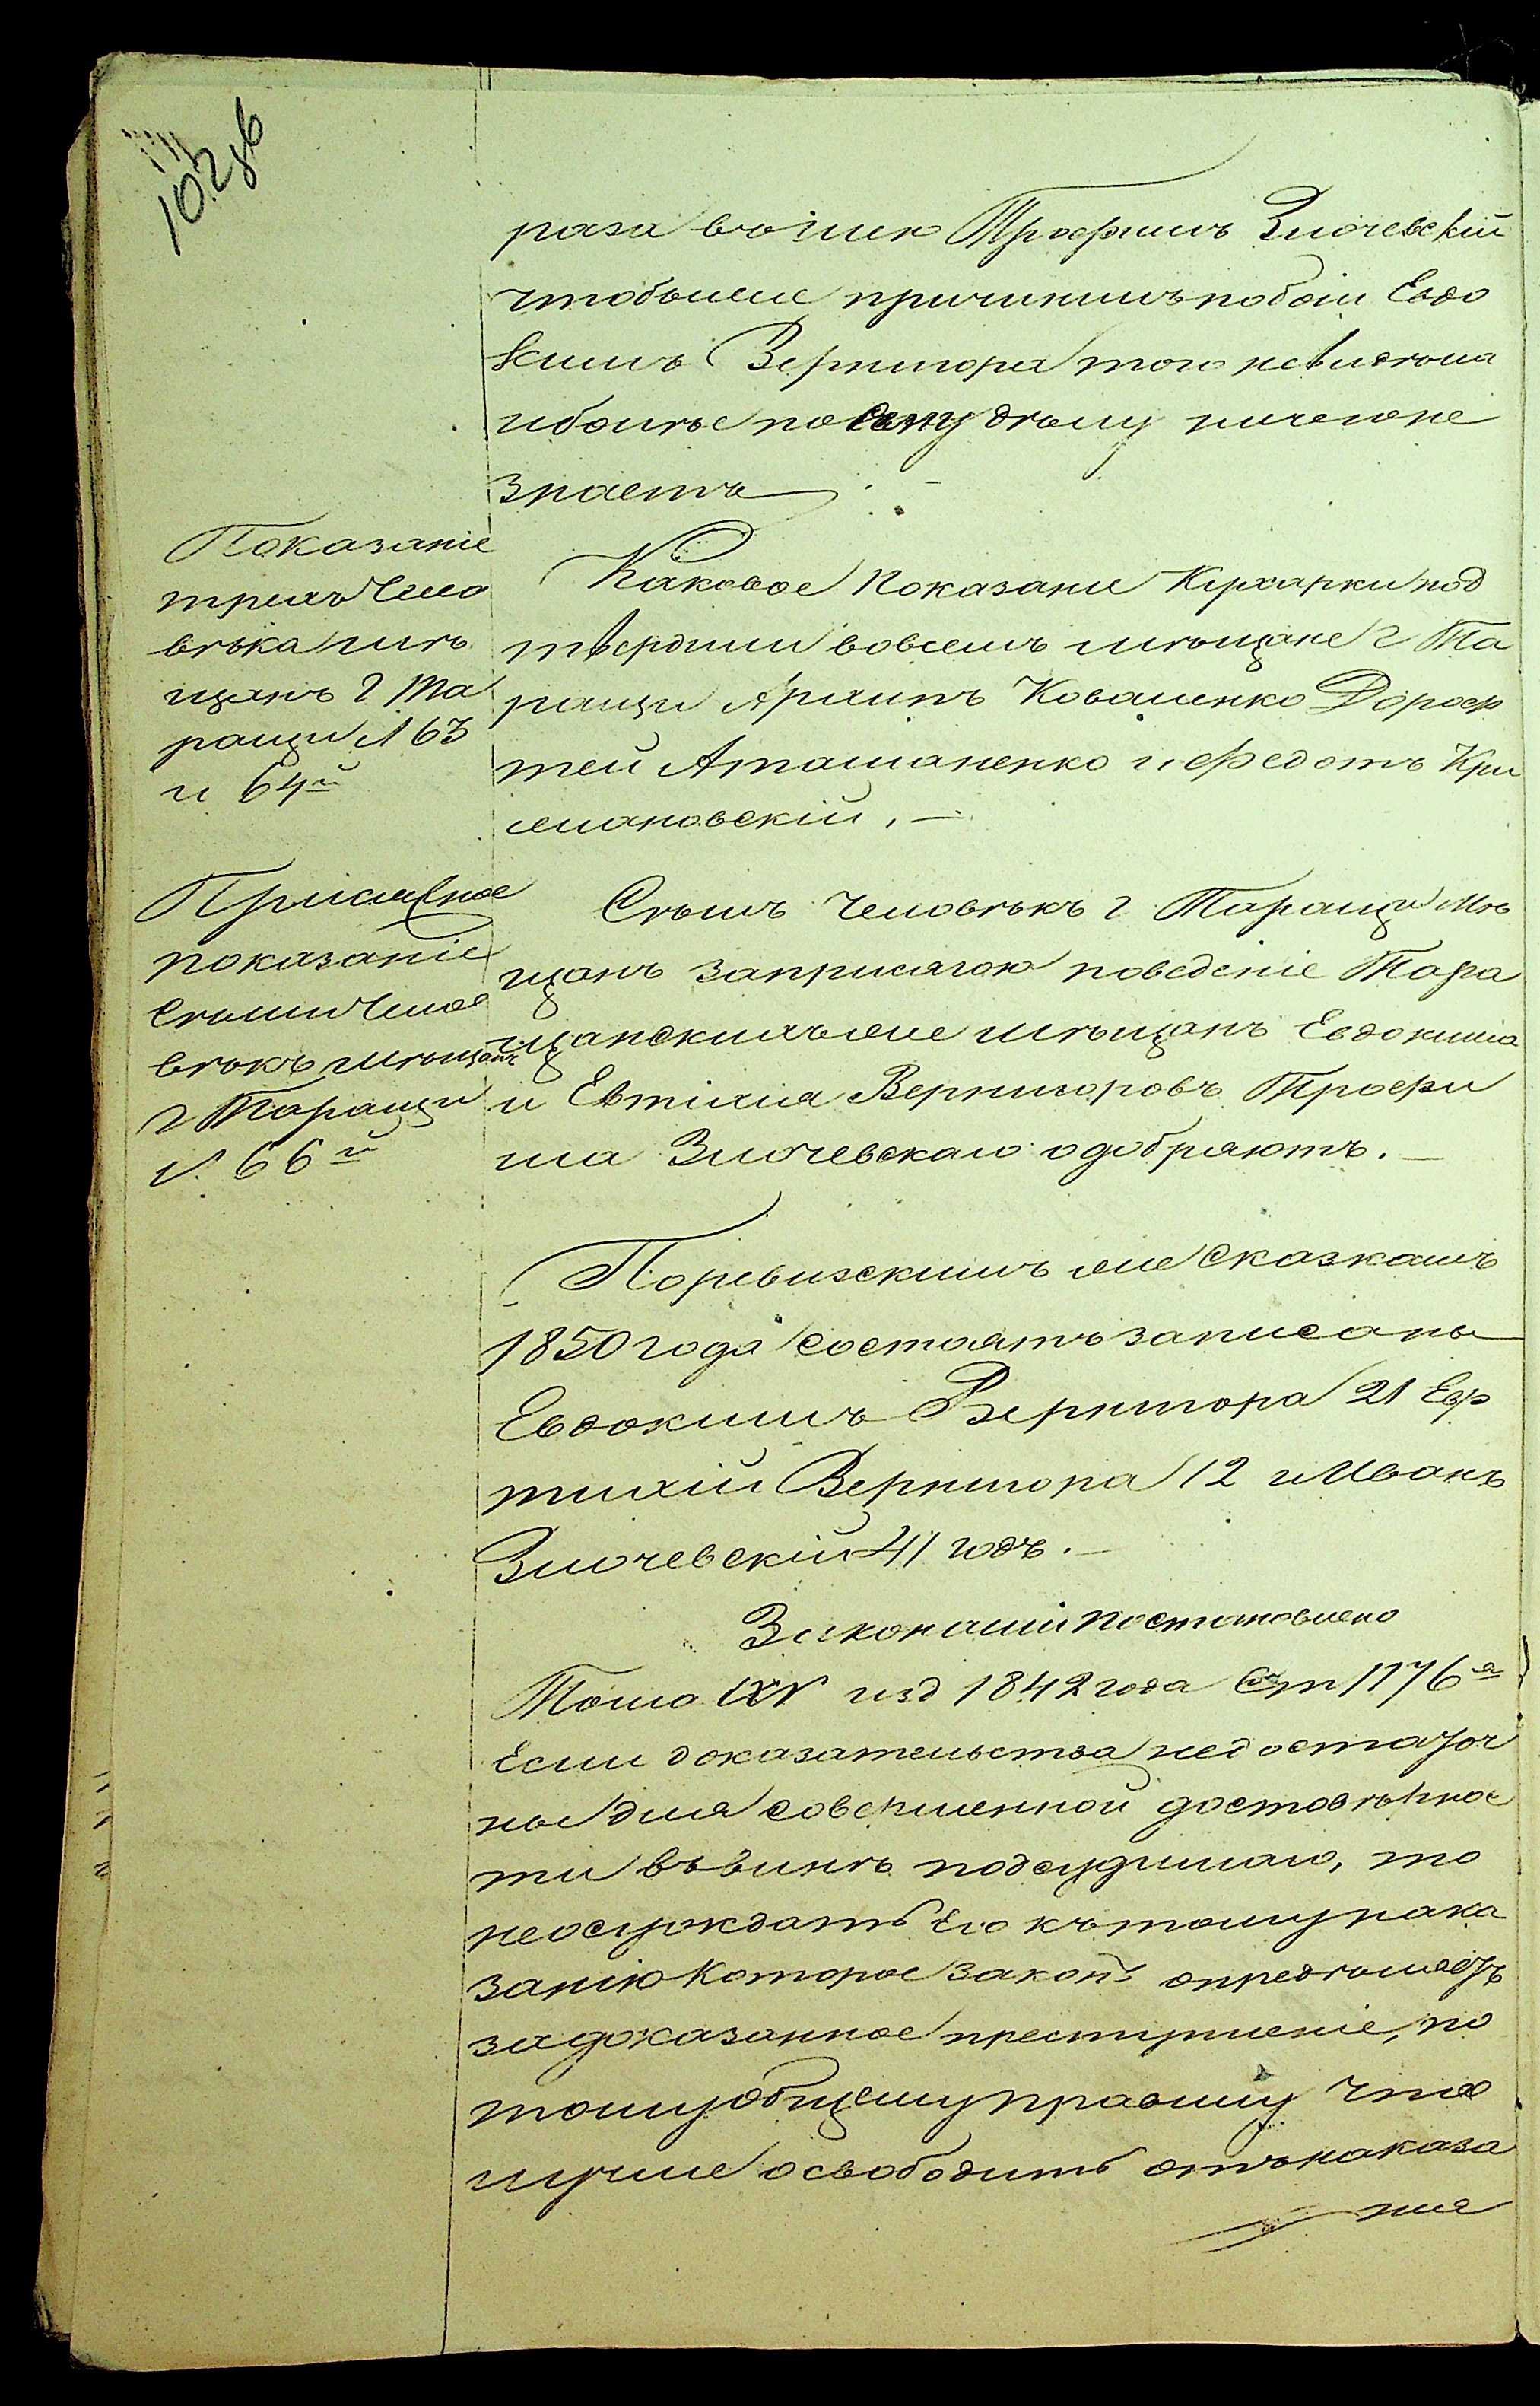 102 зв
раза въ шею Трофимъ Злочевскій
чтобы же причинилъ побои Евдо
кимъ Вернигора того невидѣла
и болѣе по сему дѣлу ничего не
знаетъ
Показаніе
трехъ чело
вѣка мѣ
щанъ г Та
ращи л 63
и 64й
Каковое показание Кухарки под
твердили во всемъ мѣщане г Та
ращи Архипъ Коваленко Дороф
тей Аташаненко и Федотъ Кри
жановскій. —
Присяжное
показаніе
семи чело
вѣкъ мѣщанъ
г Таращи
л. 66й
Семь человѣкъ г Таращи мѣ
щанъ за присягою поведеніе Тара
щанскихъ же мѣщанъ Евдокима
и Евтихія Вернигоровъ Трофи
ма Злочевскаго одобряютъ. —
По ревизскимъ же сказкамъ
1850 года состоятъ записаны
Евдокимъ Вернигора 21 Ев
тихій Вернигора 12 и Иванъ
Злочевскій 41 годъ. —
Законами постановлено
Тома XV изд 1842 года Ст 1176я
Если доказательства недостаточ
ны для совершенной достовѣрнос
ти въ винѣ подсудимаго, то
не осуждать Его къ тому нака
занію которое законъ опредѣляетъ
за доказанное преступленіе, по
тому общему правилу что
лучше освободить отъ наказа
нія